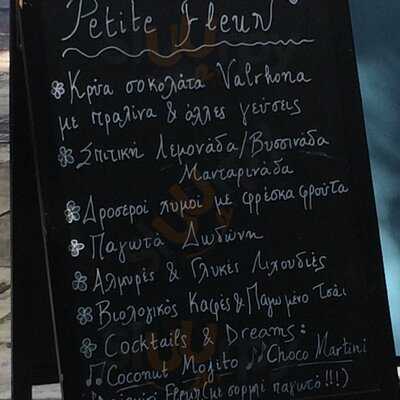 Petite Fleur
Κρύα σοκολάτα Valrhona
με πραλίνα & άλλες γεύσεις
Σπιτική Λεμονάδα/Βυσσινάδα
Μανταρινάδα
Δροσεροί χυμοί με φρέσκα φρούτα
Παγωτά Δωδώνη
Αλμυρές & Γλυκές Λιχουδιές
Βιολογικός Καφές & Παγωμένο Τσάι
Cocktails & Dreams:
Coconut Mojito Choco Martini
Fleur (με σορμπέ παγωτό!!!)